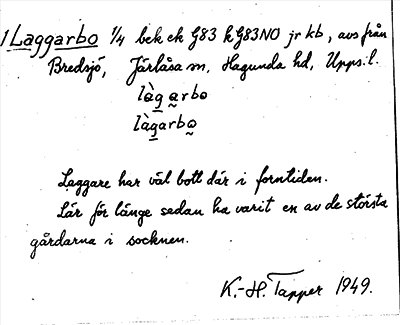 1 Laggarbo 1/4 bek ek G83 k G83NO jr kb, avs från
Bredsjö, Järlåsa sn, Hagunda hd, Upps. l.
là̱g a̰rbo
là̱garbo̰
Laggare har väl bott där i forntiden.
Lär för länge sedan ha varit en av de största
gårdarna i socknen.
K.-H. Tapper 1949.